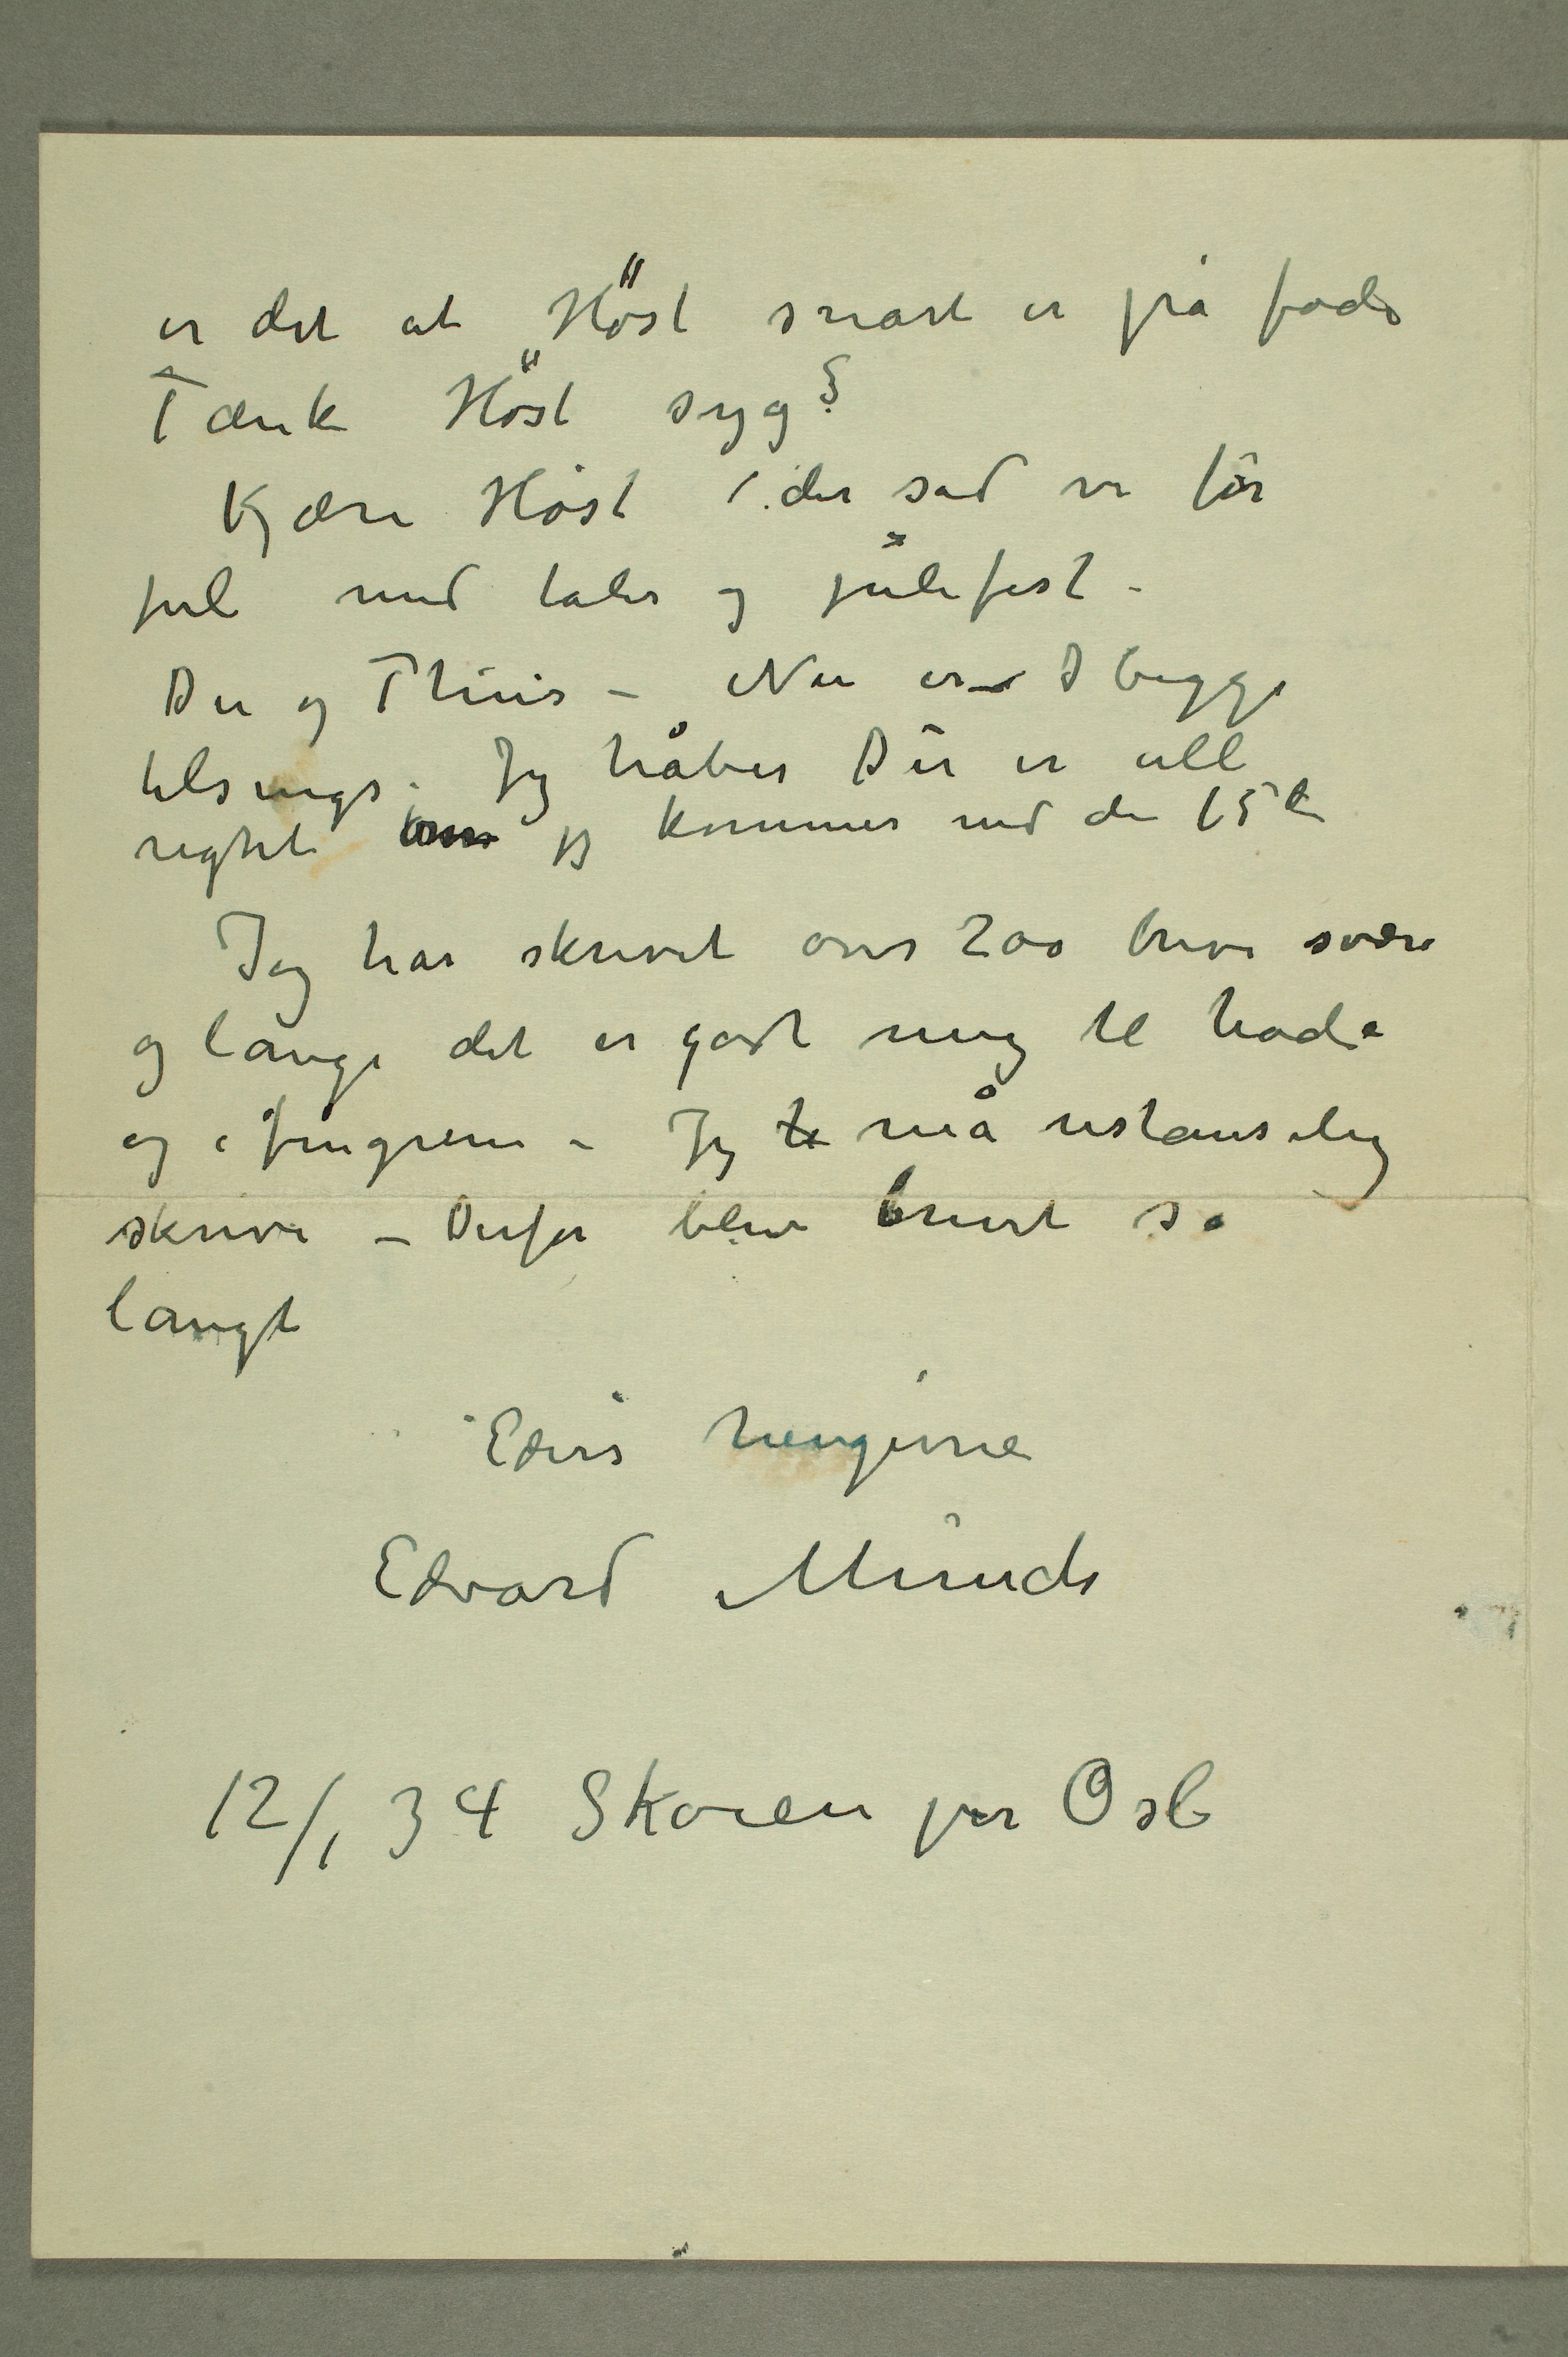 er det at Høst snart er på fode
Tænk Høst syg?
Kjære Høst! der sad vi før
jul med taler og julefest –
Du og Thiis – Nu er I begge
tilsengs. Jeg håber Du er all
right jeg kommer ned den 15de
Jeg har skrevet over 200 breve svære
og lange det er gåt mig til hode
og i fingrene – Jeg må ustanselig
skrive – Derfor blev brevet så
langt
Eders hengivne
Edvard Munch
12/1 34 Skøien per Oslo